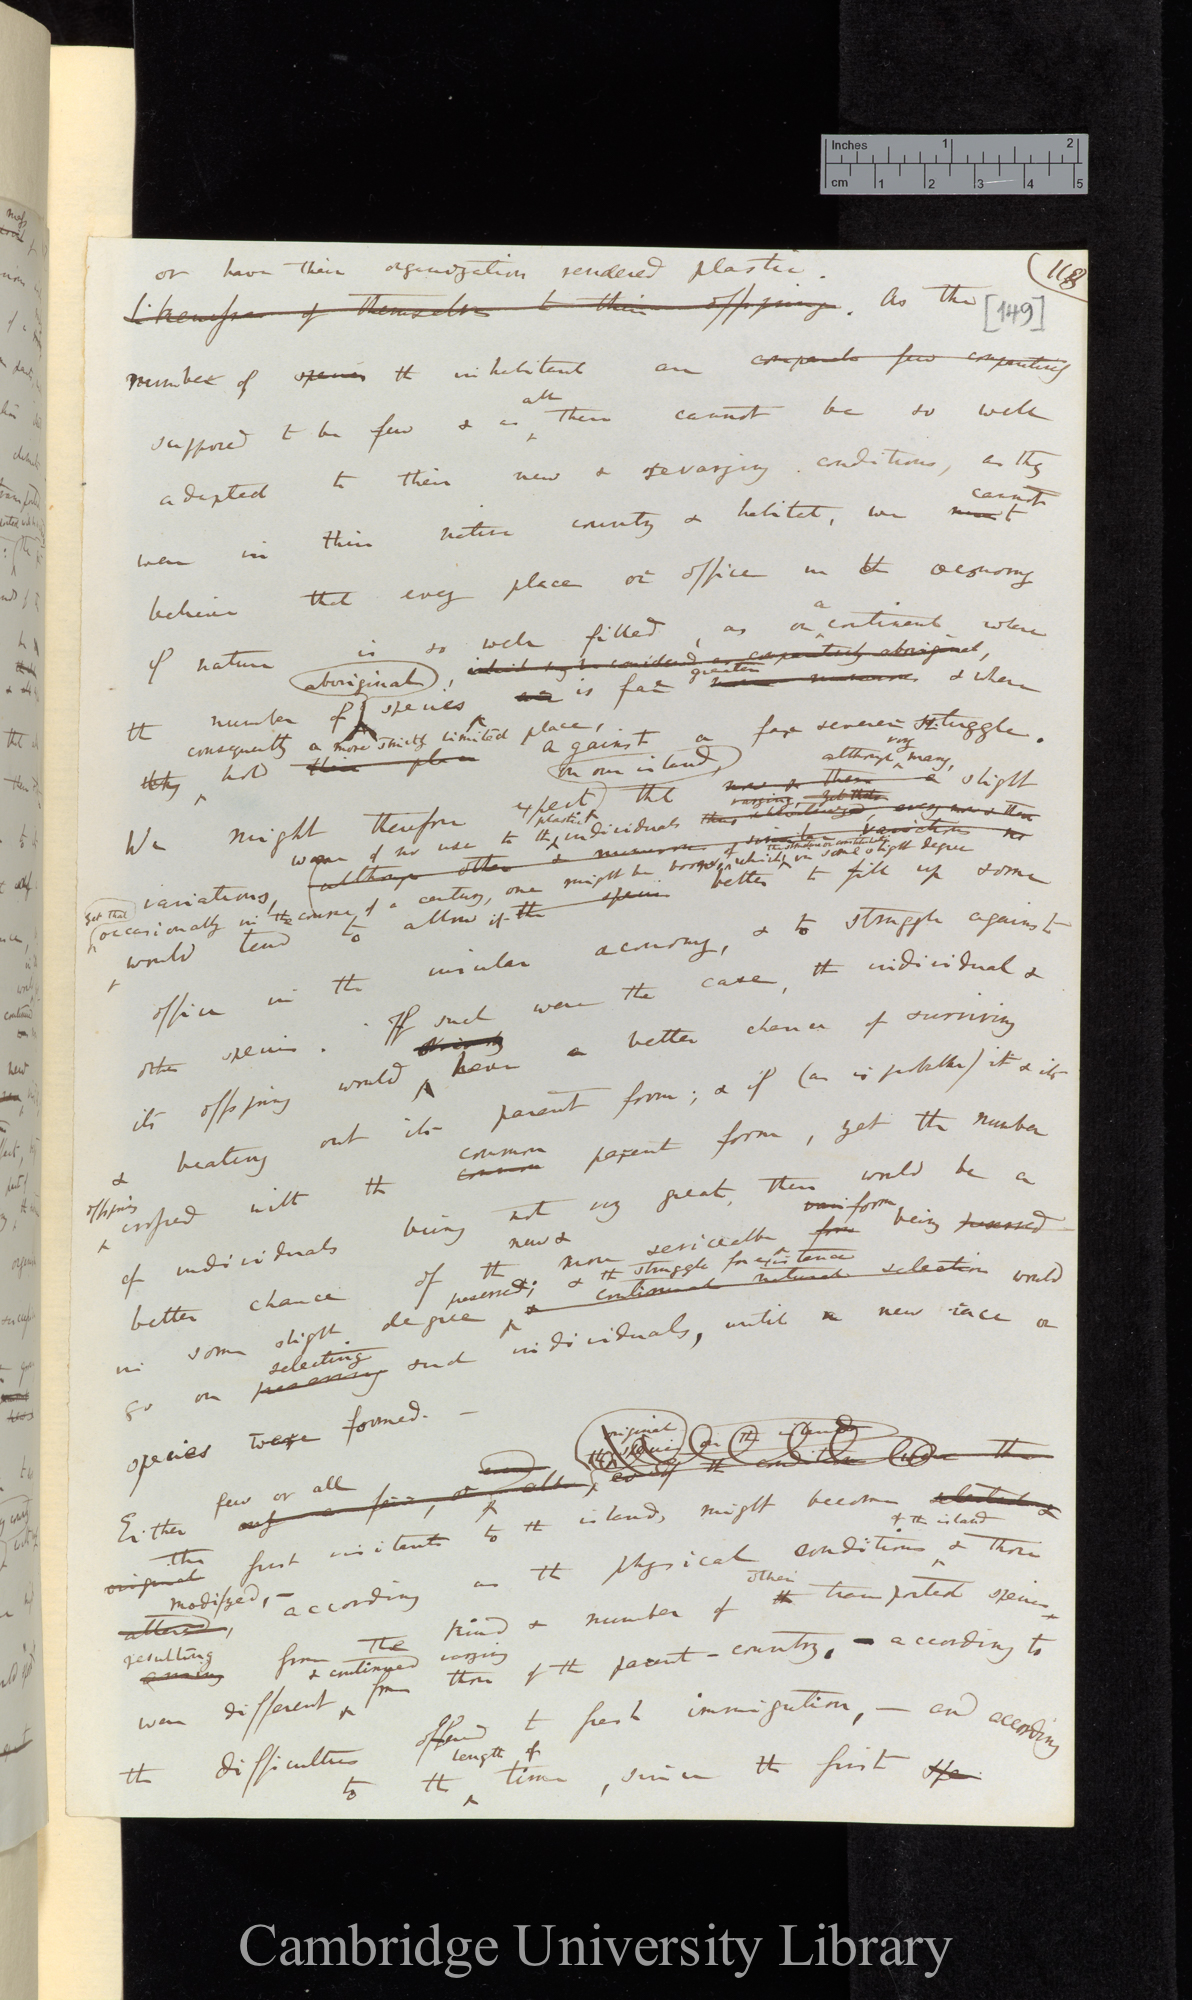 or have their organization rendered plastic.
(118
likenesses of themselves to their offspring. As the
[149]
number of species the inhabitants are
supposed to be few & as all these cannot be so well
adapted to their new & varying conditions, as they
were in their native country & habitat, we cannot
believe that every place or office in the œconomy
of nature is so well filled, as on a continent where
aboriginal, which may be considered as aboriginal,
the number of species, is far greater & where
consequently a more strictly limited place,
they hold their place against a far severer struggle.
on our island,
although very many,
We might therefore expect that slight
plastic
variations, were of no use to the individuals
although other & numerous
yet that occasionally in the course of a century, one might be born, which in some slight degree
would tend to allow of the species better to fill up some
office in the insular œconomy, & to struggle against
other species. If such were the case, the individual &
its offspring would have a better chance of surviving
& beating out its parent form; & if (as is probable) it & its
offspring crossed with the common parent form, yet the number
of individuals being not very great, there would be a
better chance of the new & more serviceable form being
in some slight degree preserved; & the struggle for existence
& continued natural selection would
go on selecting such individuals, until a new race or
species were formed. —
original
on the island
Either few or all
the first visitants to the island, might become
original
of the island
modified, — according as the physical conditions & those
altered,
resulting from the kind & number of other transported species
were different & continued varying from those of the parent-country, — according to
the difficulties offered to fresh immigration, — and according
to the length of time, since the first
Inches 1 2
cm 1 2 3 4 5
Cambridge University Library